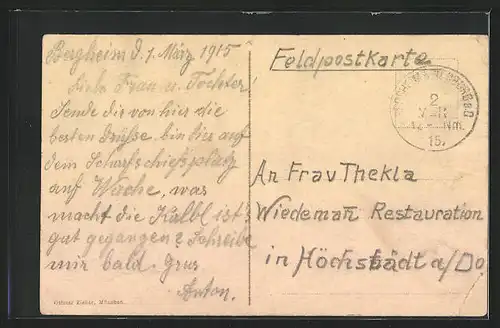 Bergheim d. 1. März 1915
Liebe Frau u. Tochter!
Sende dir von hier die
besten Grüße. bin hier auf
dem Scharfschießplatz
auf Wache, was
macht die Kalbl ist's
gut gegangen? Schreibe
mir bald. Grus
Anton.
Feldpostkarte
2
15.
An Frav Thekla
Wiedemañ Restauration
in Höchstädt a/Do.
München.